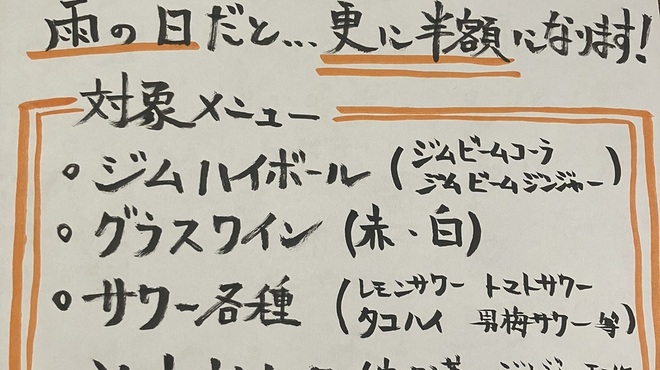 雨の日だと...更に半額になります!
対象メニュー
・ジムハイボール (ジムビームコーラ
ジムビームジンジャー)
・グラスワイン (赤・白)
・サワー各種 (レモンサワー トマトサワー
タコハイ 男梅サワー等)